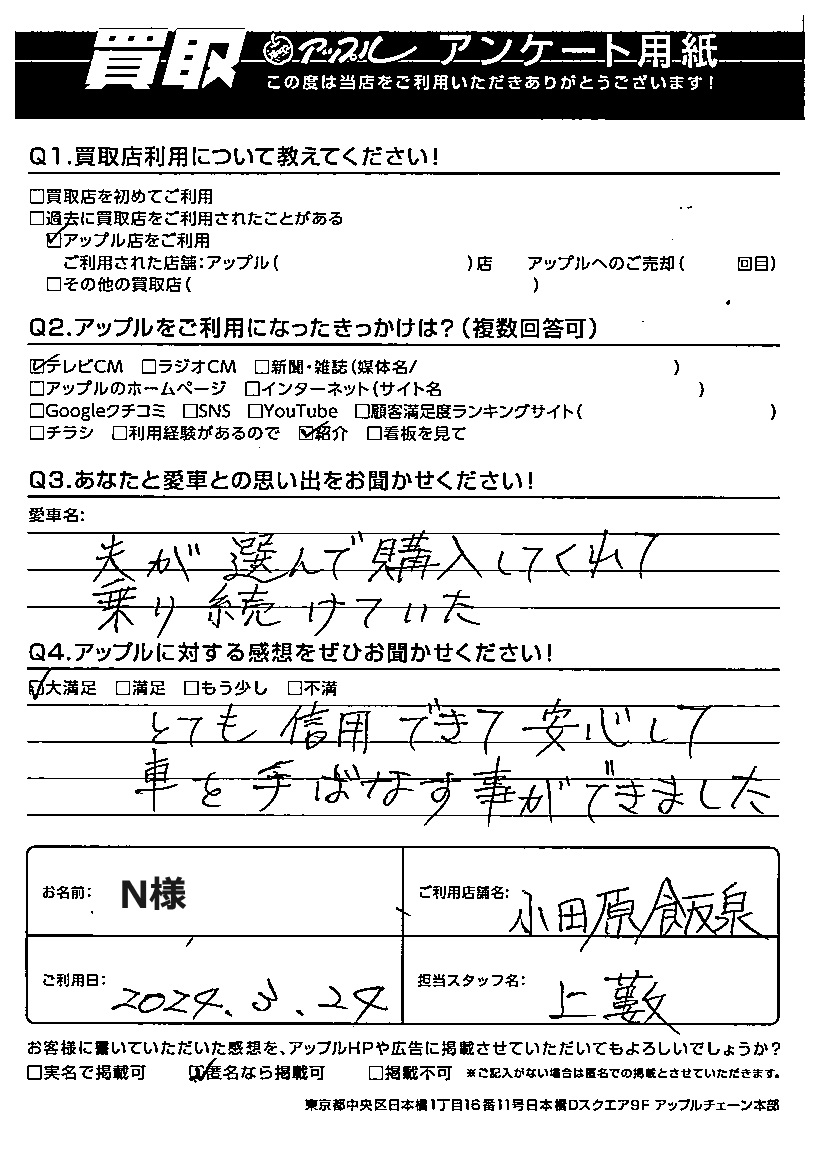 買取 アップル アンケート用紙
この度は当店をご利用いただきありがとうございます！
Q1.買取店利用について教えてください！
□買取店を初めてご利用
□過去に買取店をご利用されたことがある
☑アップル店をご利用
ご利用された店舗：アップル（ ）店 アップルへのご売却（ 回目）
□その他の買取店（ ）
Q2.アップルをご利用になったきっかけは？（複数回答可）
☑テレビCM □ラジオCM □新聞・雑誌（媒体名/ ）
□アップルのホームページ □インターネット（サイト名 ）
□Googleクチコミ □SNS □YouTube □顧客満足度ランキングサイト（ ）
□チラシ □利用経験があるので ☑紹介 □看板を見て
Q3.あなたと愛車との思い出をお聞かせください！
愛車名：
夫が選んで購入してくれて
乗り続けていた
Q4.アップルに対する感想をぜひお聞かせください！
☑大満足 □満足 □もう少し □不満
とても信用できて安心して
車を手ばなす事ができました
お名前： N様 ご利用店舗名： 小田原飯泉
ご利用日： 2024.3.24 担当スタッフ名： 上藪
お客様に書いていただいた感想を、アップルHPや広告に掲載させていただいてもよろしいでしょうか？
□実名で掲載可 ☑匿名なら掲載可 □掲載不可 ※ご記入がない場合は匿名での掲載とさせていただきます。
東京都中央区日本橋1丁目16番11号日本橋Dスクエア9F アップルチェーン本部